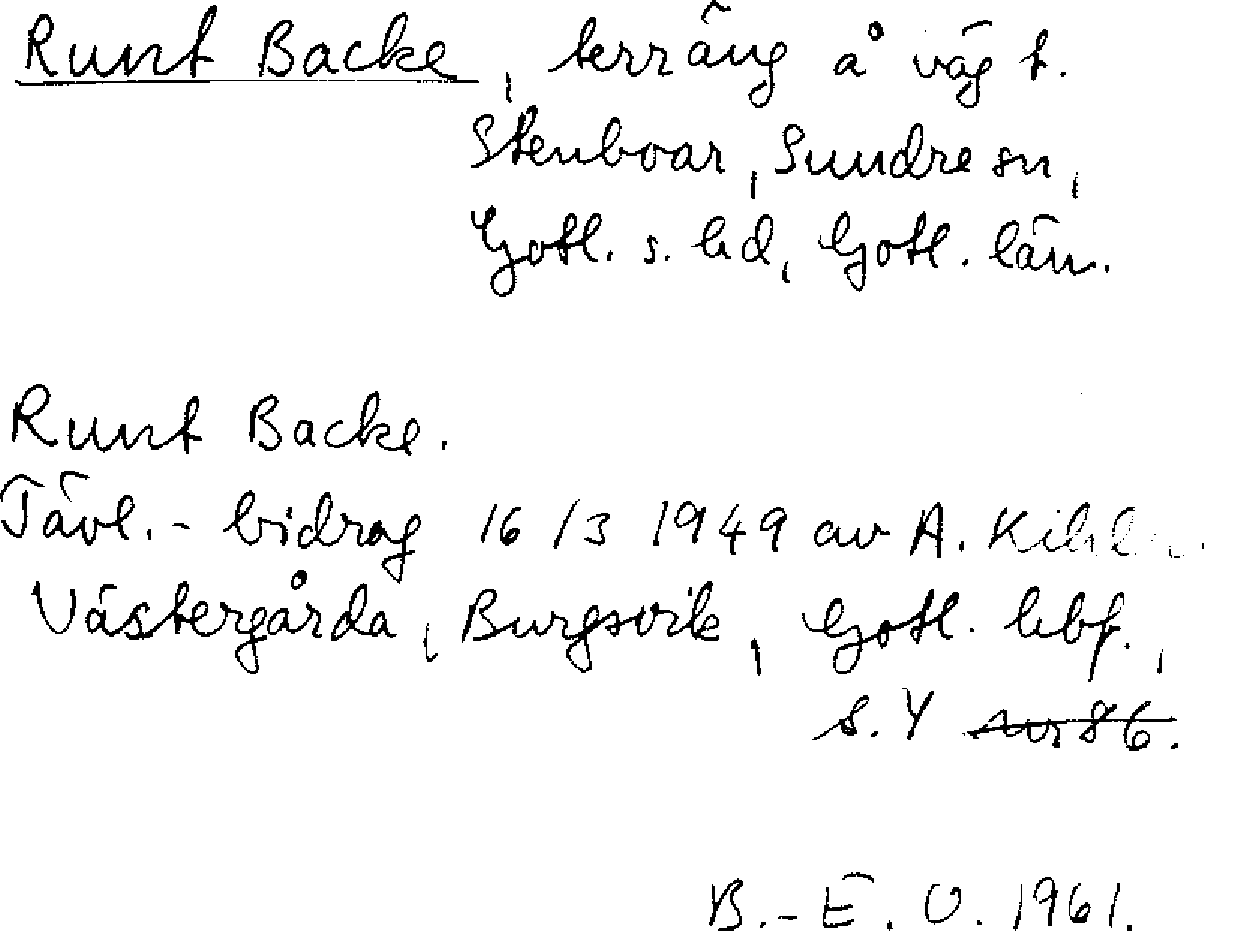 Runt Backe, terräng å väg t.
Stenboar, Sundre sn,
Gotl. s. hd, Gotl. län.
Runt Backe.
Tävl.- bidrag 16/3 1949 av A.
Västergårda, Burgsvik, Gotl. hbf.,
s. 4 nr 86.
B.-E. O. 1961.